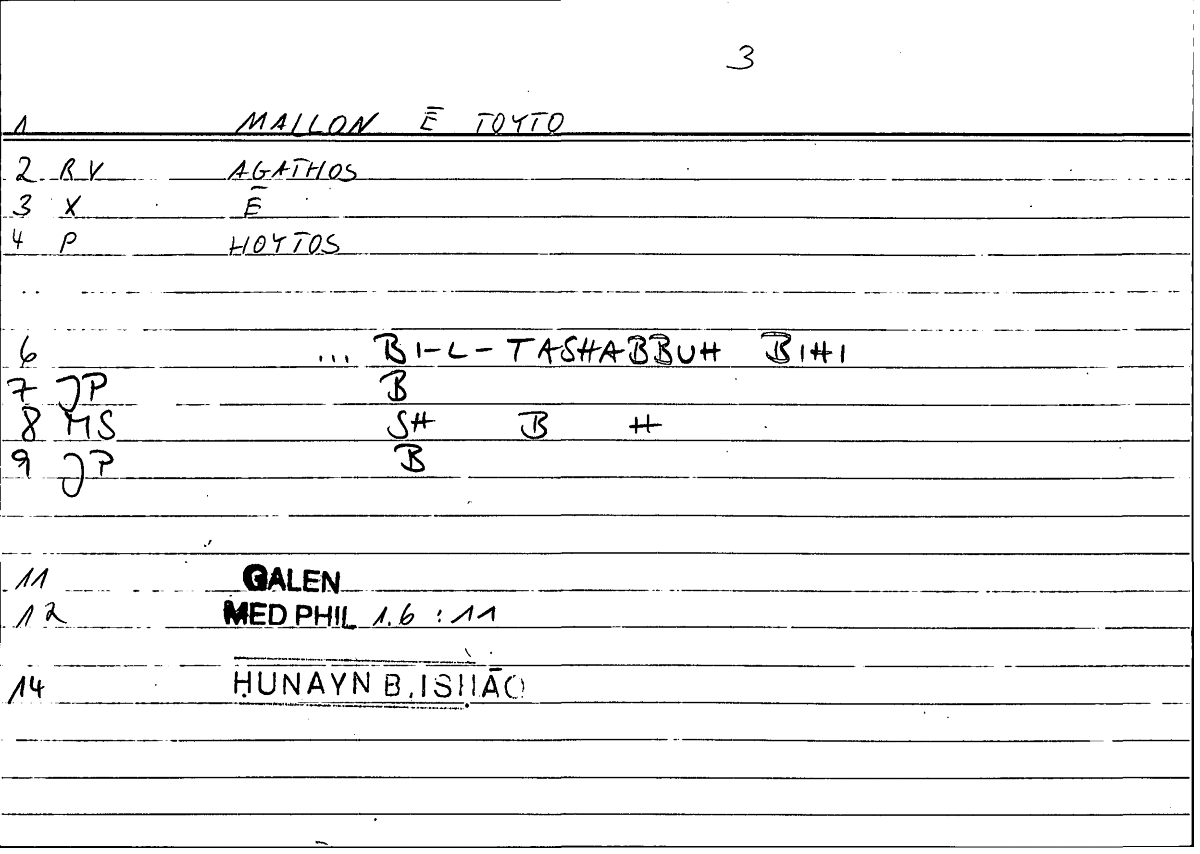 3
1 MALLON Ē TOYTO
2 RV AGATHOS
3 X Ē
4 P HOYTOS
..
6 ... BI-L-TASHABBUH BIHI
7 JP B
8 MS SH B H
9 JP B
11 GALEN
12 MED PHIL 1.6 : 11
14 ḤUNAYN B. ISḤĀQ